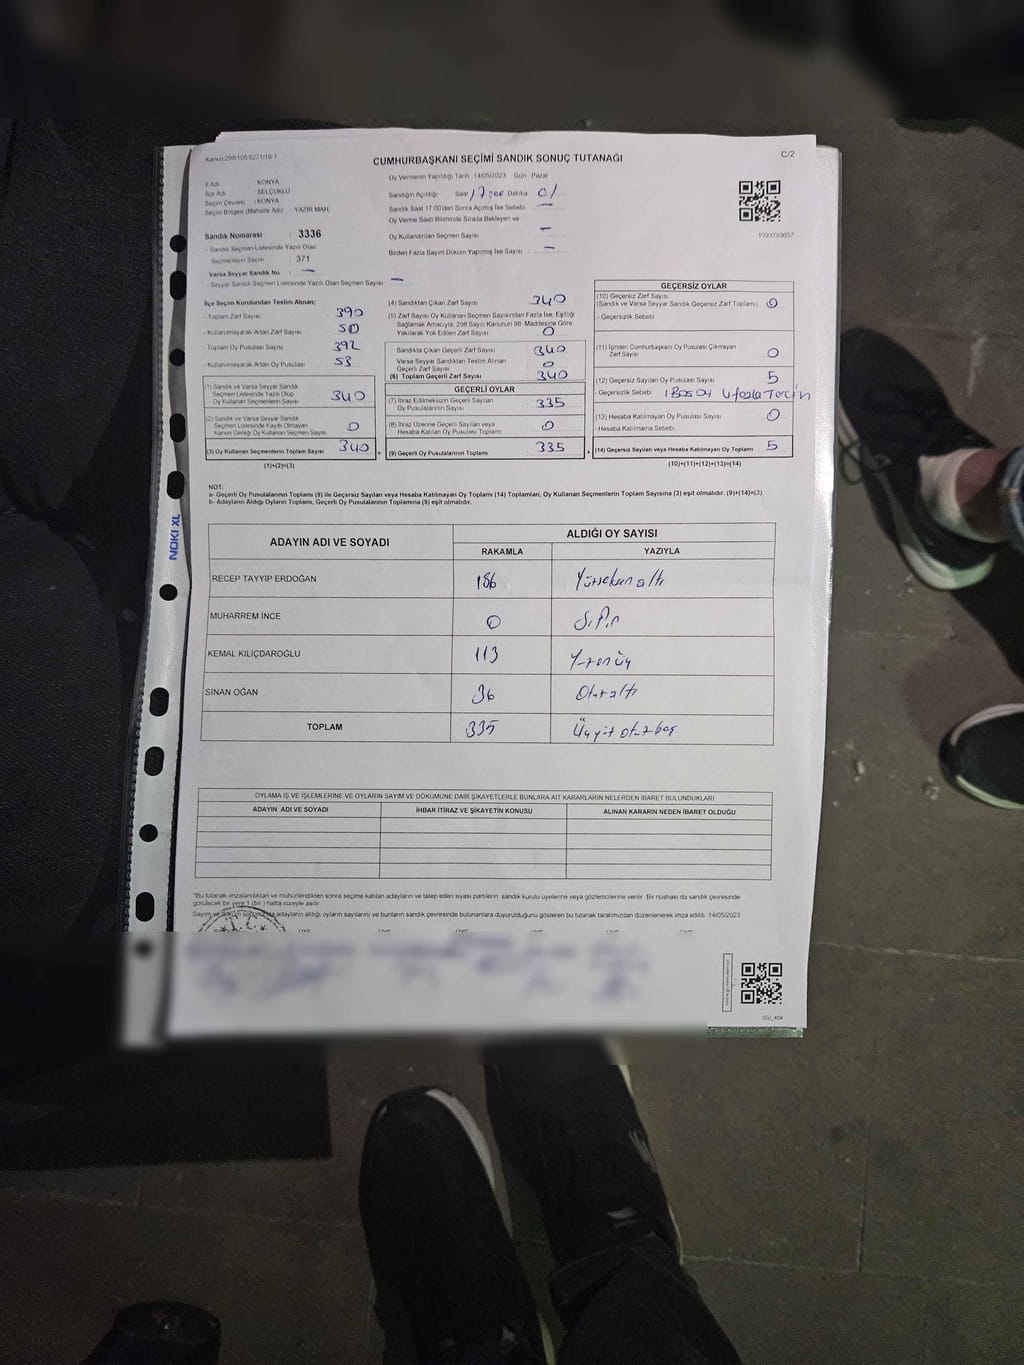 Kanun:298/105;6271/18-1
C/2
CUMHURBAŞKANI SEÇİMİ SANDIK SONUÇ TUTANAĞI
İl Adı : KONYA
İlçe Adı : SELÇUKLU
Seçim Çevresi : KONYA
Seçim Bölgesi (Mahalle Adı) : YAZIR MAH.
Sandık Numarası : 3336
- Sandık Seçmen Listesinde Yazılı Olan
Seçmenlerin Sayısı : 371
Varsa Seyyar Sandık No : —
- Seyyar Sandık Seçmen Listesinde Yazılı Olan Seçmen Sayısı : —
Oy Vermenin Yapıldığı Tarih : 14/05/2023 Gün : Pazar
Sandığın Açıldığı Saat 17:00 Dakika 01
Sandık Saat 17.00'den Sonra Açılmış İse Sebebi : —
Oy Verme Saati Bitiminde Sırada Bekleyen ve
Oy Kullandırılan Seçmen Sayısı : —
Birden Fazla Sayım Döküm Yapılmış İse Sayısı : —
1993793657
İlçe Seçim Kurulundan Teslim Alınan;
- Toplam Zarf Sayısı 390
- Kullanılmayarak Artan Zarf Sayısı 50
- Toplam Oy Pusulası Sayısı 392
- Kullanılmayarak Artan Oy Pusulası 53
(1) Sandık ve Varsa Seyyar Sandık
Seçmen Listesinde Yazılı Olup
Oy Kullanan Seçmenlerin Sayısı 340
(2) Sandık ve Varsa Seyyar Sandık
Seçmen Listesinde Kayıtlı Olmayan
Kanun Gereği Oy Kullanan Seçmen Sayısı 0
(3) Oy Kullanan Seçmenlerin Toplam Sayısı 340
(1)+(2)=(3)
(4) Sandıktan Çıkan Zarf Sayısı 340
(5) Zarf Sayısı Oy Kullanan Seçmen Sayısından Fazla İse, Eşitliği
Sağlamak Amacıyla, 298 Sayılı Kanunun 98. Maddesine Göre
Yakılarak Yok Edilen Zarf Sayısı 0
Sandıkta Çıkan Geçerli Zarf Sayısı 340
Varsa Seyyar Sandıktan Teslim Alınan
Geçerli Zarf Sayısı 0
(6) Toplam Geçerli Zarf Sayısı 340
GEÇERLİ OYLAR
(7) İtiraz Edilmeksizin Geçerli Sayılan
Oy Pusulalarının Sayısı 335
(8) İtiraz Üzerine Geçerli Sayılan veya
Hesaba Katılan Oy Pusulası Toplamı 0
(9) Geçerli Oy Pusulalarının Toplamı 335
GEÇERSİZ OYLAR
(10) Geçersiz Zarf Sayısı
(Sandık ve Varsa Seyyar Sandık Geçersiz Zarf Toplamı) 0
- Geçersizlik Sebebi :
(11) İçinden Cumhurbaşkanı Oy Pusulası Çıkmayan
Zarf Sayısı 0
(12) Geçersiz Sayılan Oy Pusulası Sayısı 5
- Geçersizlik Sebebi : 1 Boş 04 4 fazla Tercih
(13) Hesaba Katılmayan Oy Pusulası Sayısı 0
- Hesaba Katılmama Sebebi :
(14) Geçersiz Sayılan veya Hesaba Katılmayan Oy Toplamı 5
(10)+(11)+(12)+(13)=(14)
NOT:
a- Geçerli Oy Pusulalarının Toplamı (9) ile Geçersiz Sayılan veya Hesaba Katılmayan Oy Toplamı (14) Toplamları, Oy Kullanan Seçmenlerin Toplam Sayısına (3) eşit olmalıdır. (9)+(14)=(3)
b- Adayların Aldığı Oyların Toplamı, Geçerli Oy Pusulalarının Toplamına (9) eşit olmalıdır.
NOKI XL
ADAYIN ADI VE SOYADI ALDIĞI OY SAYISI
RAKAMLA YAZIYLA
RECEP TAYYİP ERDOĞAN 186 Yüzseksen altı
MUHARREM İNCE 0 Sıfır
KEMAL KILIÇDAROĞLU 113 Yüzonüç
SİNAN OĞAN 36 Otuzaltı
TOPLAM 335 Üçyüz otuzbeş
OYLAMA İŞ VE İŞLEMLERİNE VE OYLARIN SAYIM VE DÖKÜMÜNE DAİR ŞİKAYETLERLE BUNLARA AİT KARARLARIN NELERDEN İBARET BULUNDUKLARI
ADAYIN ADI VE SOYADI İHBAR İTİRAZ VE ŞİKAYETİN KONUSU ALINAN KARARIN NEDEN İBARET OLDUĞU
*Bu tutanak imzalandıktan ve mühürlendikten sonra seçime katılan adayların ve talep eden siyasi partilerin sandık kurulu üyelerine veya gözlemcilerine verilir. Bir nüshası da sandık çevresinde
görülecek bir yere 1 (bir) hafta süreyle asılır.
Sayım ve döküm sonunda adayların aldığı oyların sayılarını ve bunların sandık çevresinde bulunanlara duyurulduğunu gösteren bu tutanak tarafımızdan düzenlenerek imza edildi. 14/05/2023
SGI_404